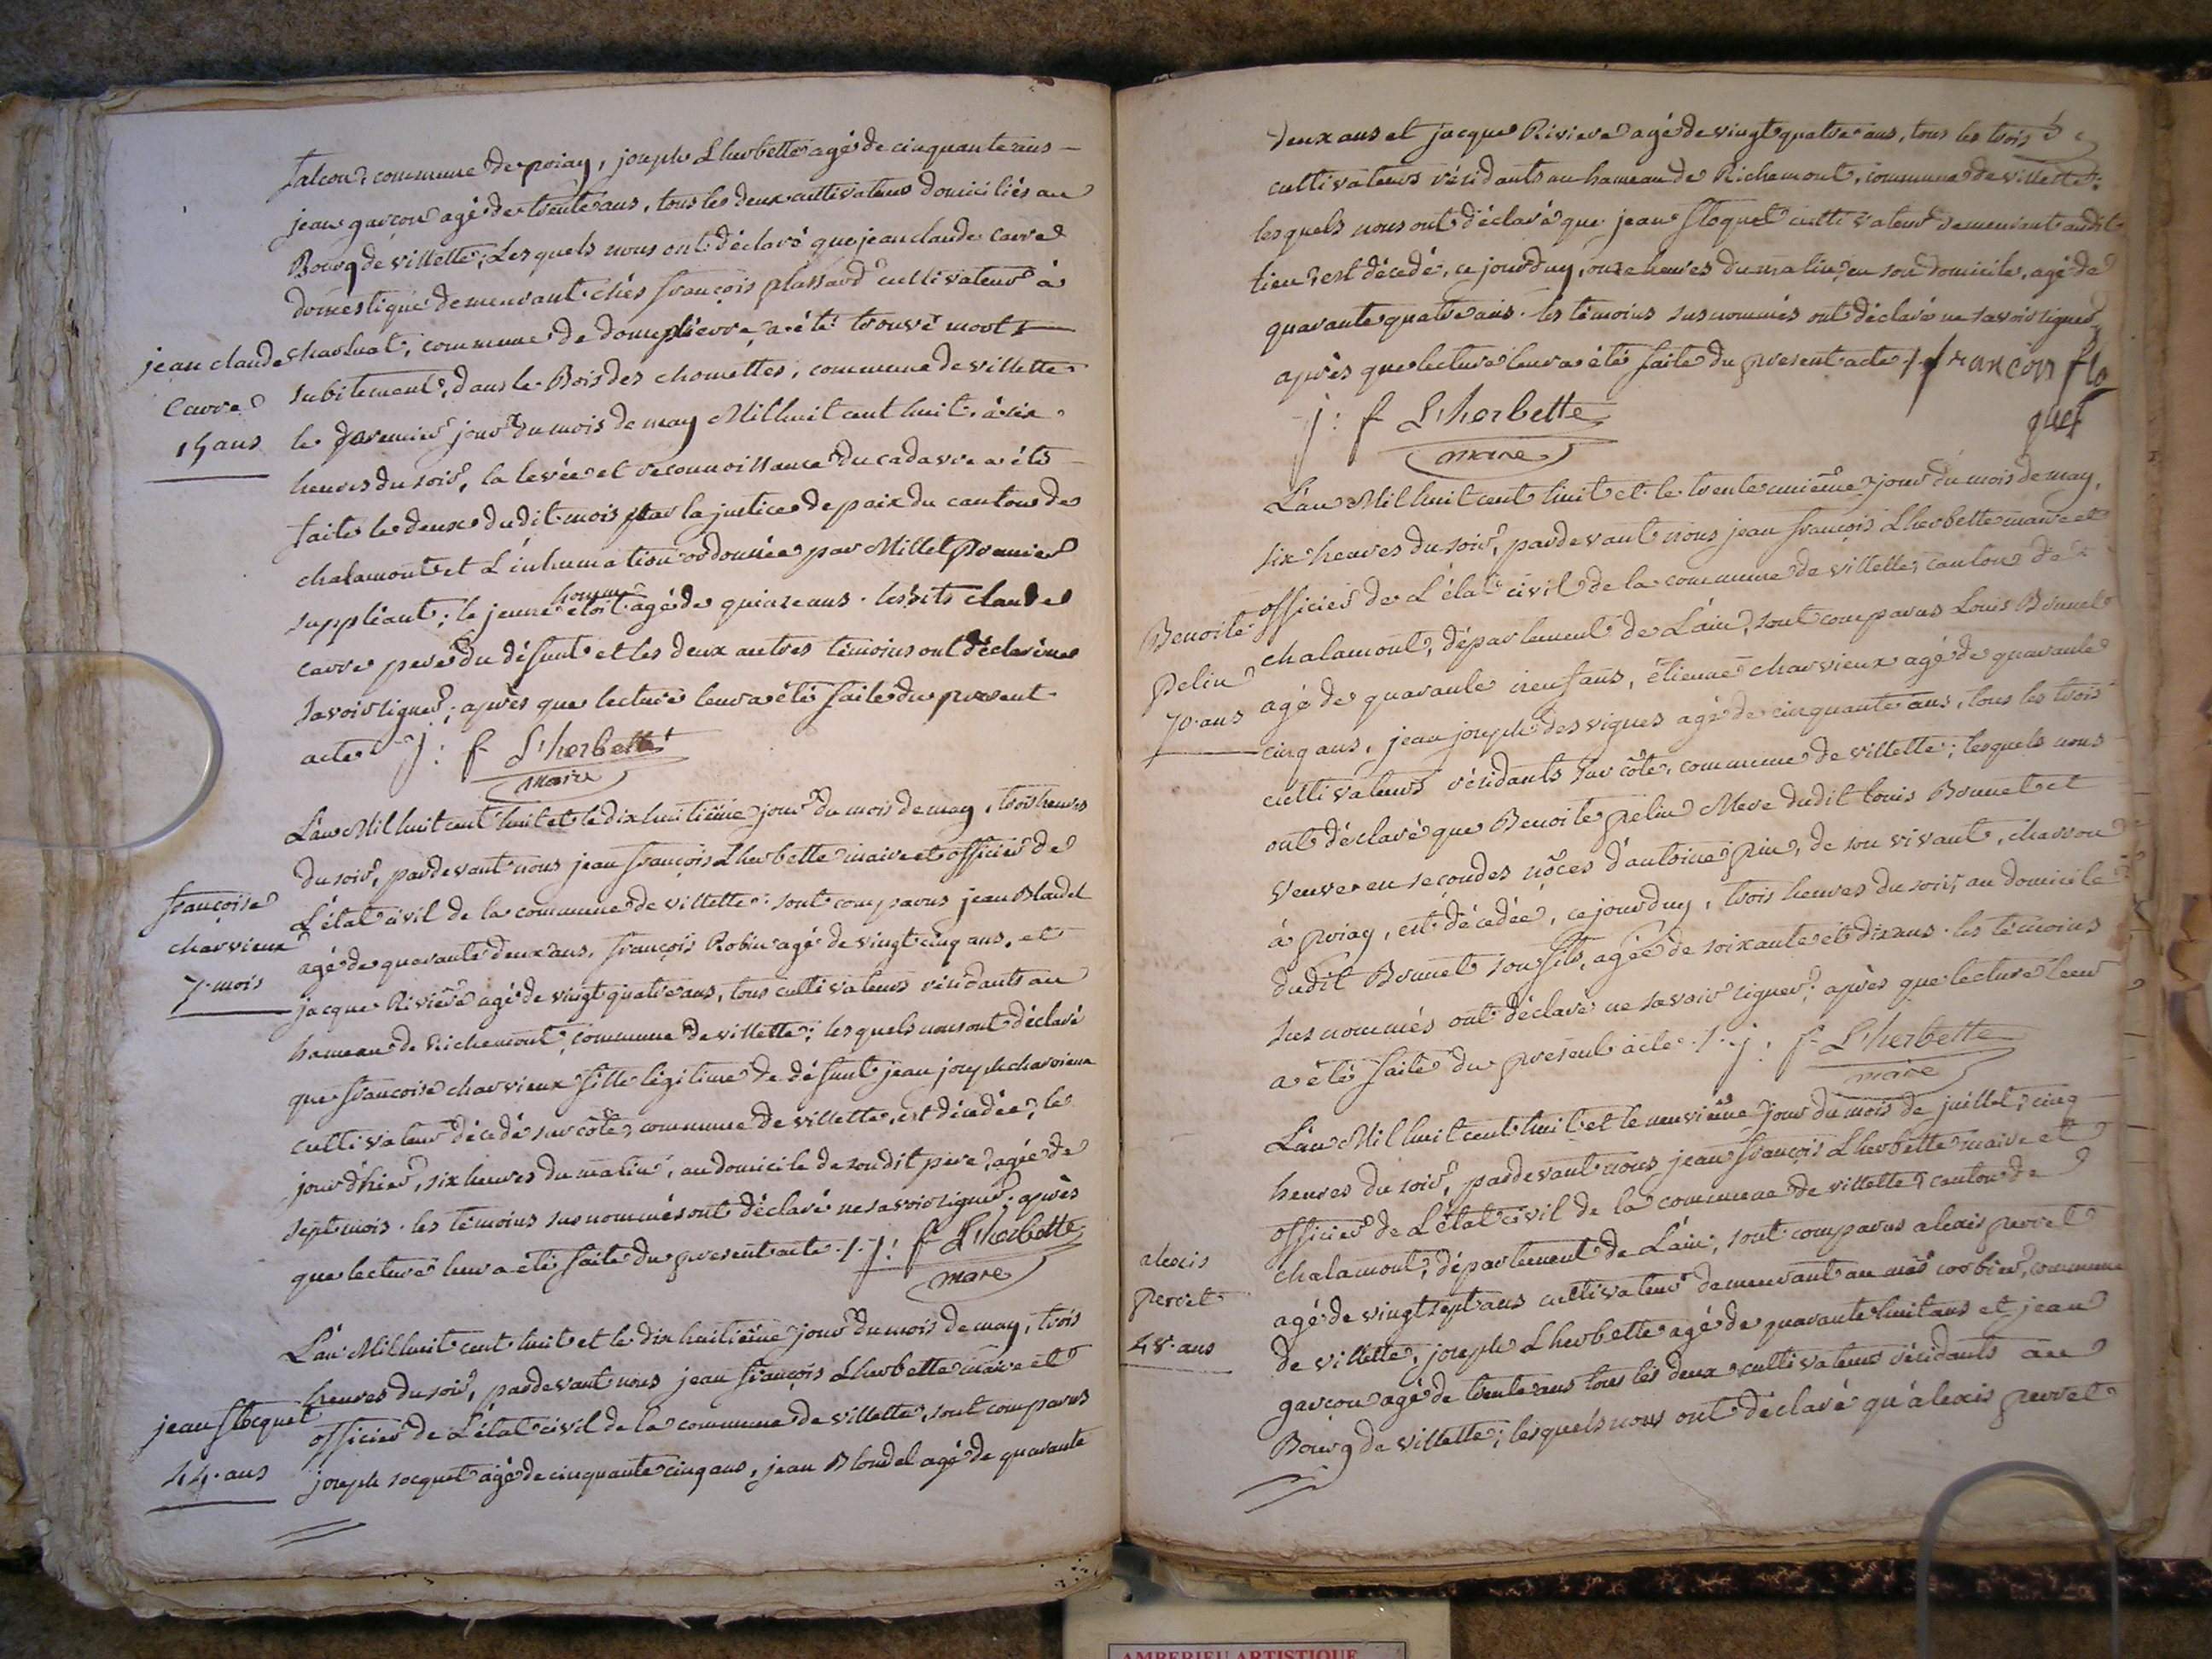 falcon, commune de priay, joseph Lherbette agé de cinquante ans
jean garçon agé de trente ans, tous les deux cultivateurs domiciliés au
Bourg de villette; Les quels nous ont déclaré que jean claude carre
domestique demeurant chés françois plassard cultivateur à
charluat, commune de dompierre, a été trouvé mort
jean claude
carre
15 ans
subitement, dans le Bois des chomettes, commune de villette
le premier jour du mois de may Mil huit cent huit, à six
heures du soir, la levée et reconnoissance du cadavre a été
faite le deux dudit mois par la justice de paix du canton de
chalamont et L'inhumation ordonnée par Millet premier
suppléant; le jeune homme étoit agé de quinze ans. lesdits claude
carre pere du défunt et les deux autres témoins ont déclaré ne
savoir signer; après que lecture leur a été faite du present
acte j: f L'herbette
maire
L'an Mil huit cent huit et le dix huitième jour du mois de may, trois heures
du soir, pardevant nous jean françois Lherbette maire et officier de
L'état civil de la commune de villette: sont comparus jean Blondel
françoise
charvieux
7 mois
agé de quarante deux ans, françois Robin agé de vingt cinq ans, et
jacque Rivière agé de vingt quatre ans, tous cultivateurs résidants au
hameau de Richemont, commune de villette; les quels nous ont déclaré
que françoise charvieux fille légitime de défunt jean joseph charvieux
cultivateur décédé sur côte, commune de villette, est décédée, le
jour d'hier, six heures du matin, au domicile de sondit père, agée de
sept mois. les témoins susnommés ont déclaré ne savoir signer; après
que lecture leur a été faite du present acte ./. j: f L'herbette
maire
L'an Mil huit cent huit et le dix huitième jour du mois de may, trois
heures du soir, pardevant nous jean françois Lherbette maire et
jean flocquet
44 ans
officier de L'état civil de la commune de villette, sont comparus
joseph socquet agé de cinquante cinq ans, jean Blondel agé de quarante
deux ans et jacque Riviere agé de vingt quatre ans, tous les trois
cultivateurs résidants au hameau de Richemont, commune de villette;
lesquels nous ont déclaré que jean floquet cultivateur demeurant audit
lieu, est décedé, ce jourd'uy, onze heures du matin, en son domicile, agé de
quarante quatre ans. les témoins susnommés ont déclaré ne savoir signer
après que lecture leur a été faite du present acte ./. francois flo
quet
j: f L'herbette
maire
L'an Mil huit cent huit et le trente unième jour du mois de may,
six heures du soir, pardevant nous jean françois Lherbette maire et
officier de L'état civil de la commune de villette, canton de
Benoite
pelin
70 ans
chalamont, département de L'ain, sont comparus Louis Bonnet
agé de quarante neuf ans, étienne charvieux agé de quarante
cinq ans, jean joseph desvignes agé de cinquante ans, tous les trois
cultivateurs résidants sur côte, commune de villette; lesquels nous
ont déclaré que Benoite pelin Mere dudit louis Bonnet et
veuve en secondes nôces d'antoine pin, de son vivant, charron
à priay, est décedée, ce jourd'uy, trois heures du soir, au domicile
dudit Bonnet son fils, agée de soixante et dix ans. les témoins
susnommés ont déclaré ne savoir signer; après que lecture leur
a été faite du present acte ./. j: f L'herbette
maire
L'an Mil huit cent huit et le neuvième jour du mois de juillet, cinq
heures du soir, pardevant nous jean françois Lherbette maire et
officier de L'état civil de la commune de villette, canton de
chalamont, département de L'ain, sont comparus alexis perret
alexis
perret
48 ans
agé de vingt sept ans cultivateur demeurant au mas corbier, commune
de villette, joseph Lherbette agé de quarante huit ans et jean
garçon agé de trente ans tous les deux cultivateurs résidants au
Bourg de villette; lesquels nous ont déclaré qu'alexis perret
AMBERIEU ARTISTIQUE